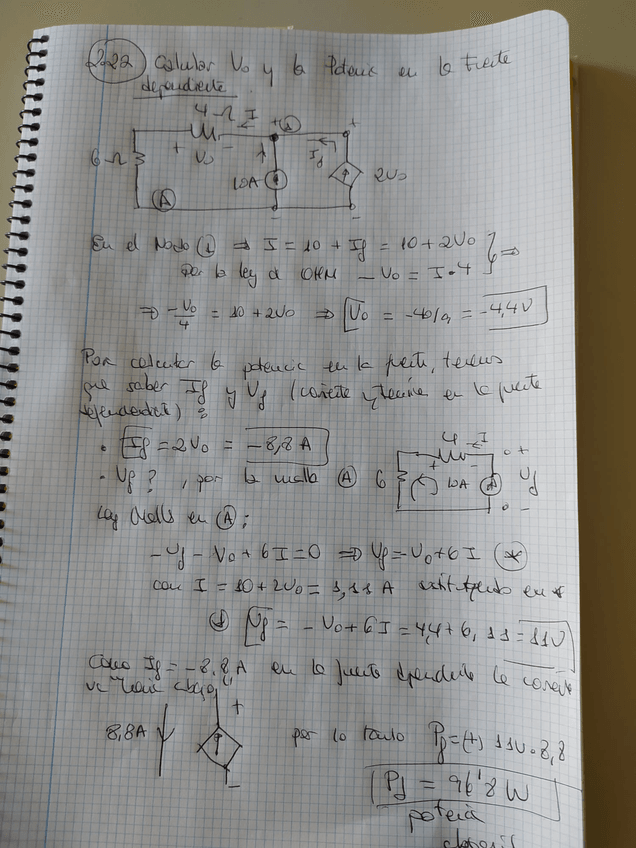 2.22 Calcular Vo y la Potencia en la fuente
dependiente.
4 Ω I
+ 1 +
6 Ω + Vo - If
10A 2Vo
A
- -
En el Nodo 1 ⇒ I = 10 + If = 10 + 2Vo } ⇒
por la ley de OHM - Vo = I · 4
⇒ -Vo/4 = 10 + 2Vo ⇒ Vo = -40/9 = -4,4V
Para calcular la potencia en la fuente, tenemos
que saber If y Vf (corriente y tensión en la fuente
dependiente) :
• If = 2Vo = -8,8 A
4 I
• Vf ? , por la malla A 6 + - 10A + Vf -
Ley Malls en A :
-Vf - Vo + 6I = 0 ⇒ Vf = -Vo + 6I *
con I = 10 + 2Vo = 1,11 A sustituyendo en *
Vf = - Vo + 6I = 4,4 + 6, 11 = 11V
Como If = -8,8 A en la fuente dependiente la corriente
va hacia abajo
+
8,8A por lo tanto Pf = (+) 11V · 8,8
-
Pf = 96'8 W
potencia